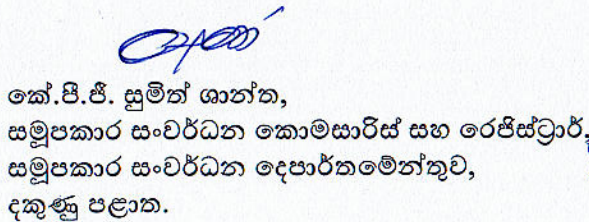 කේ.පී.ජී. සුමිත් ශාන්ත,
සමූපකාර සංවර්ධන කොමසාරිස් සහ රෙජිස්ට්‍රාර්,
සමූපකාර සංවර්ධන දෙපාර්තමේන්තුව,
දකුණු පළාත.